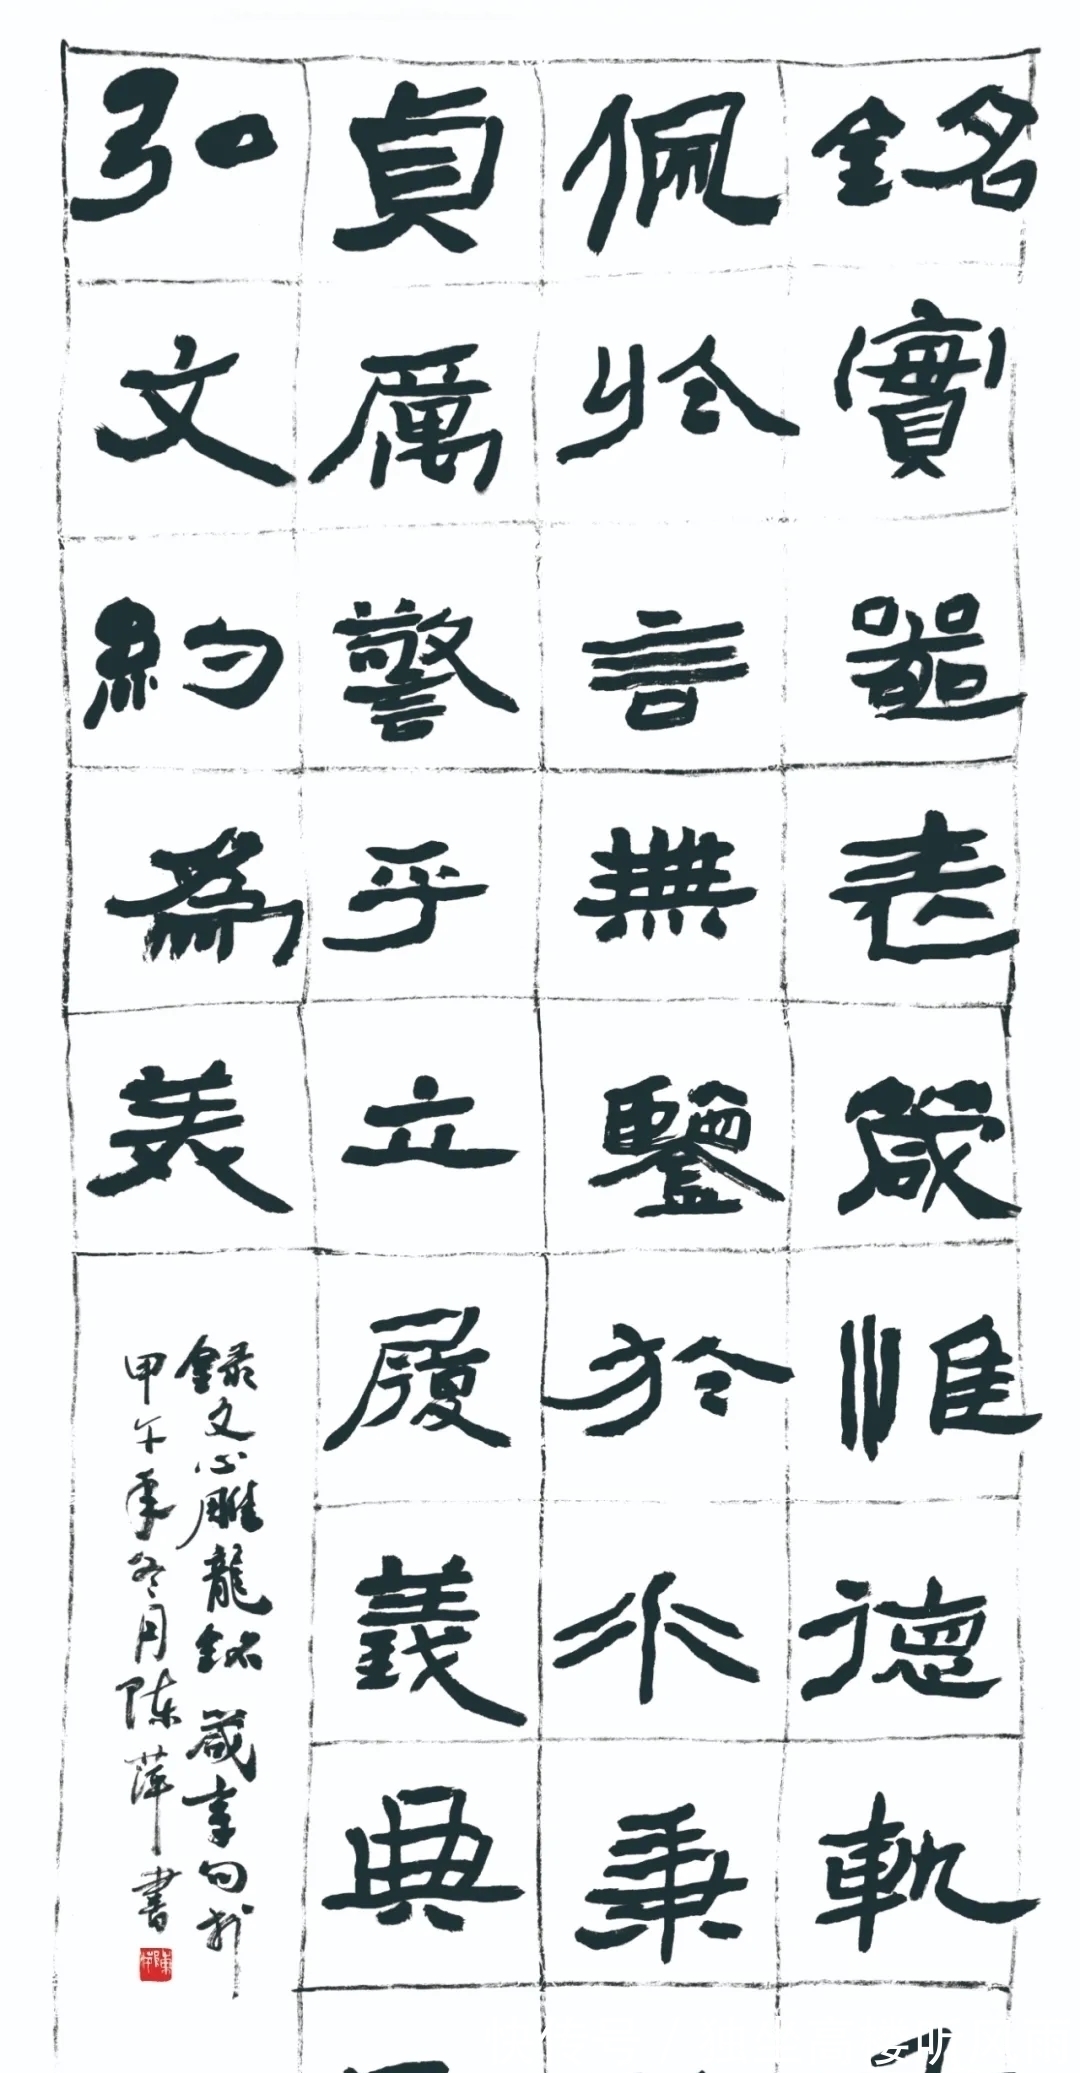 銘實器表箴惟德軌
佩於言無鑒於水秉
貞厲警乎立履義典
弘文約為美
錄文心雕龍銘箴章句於
甲午年冬月陳萍書